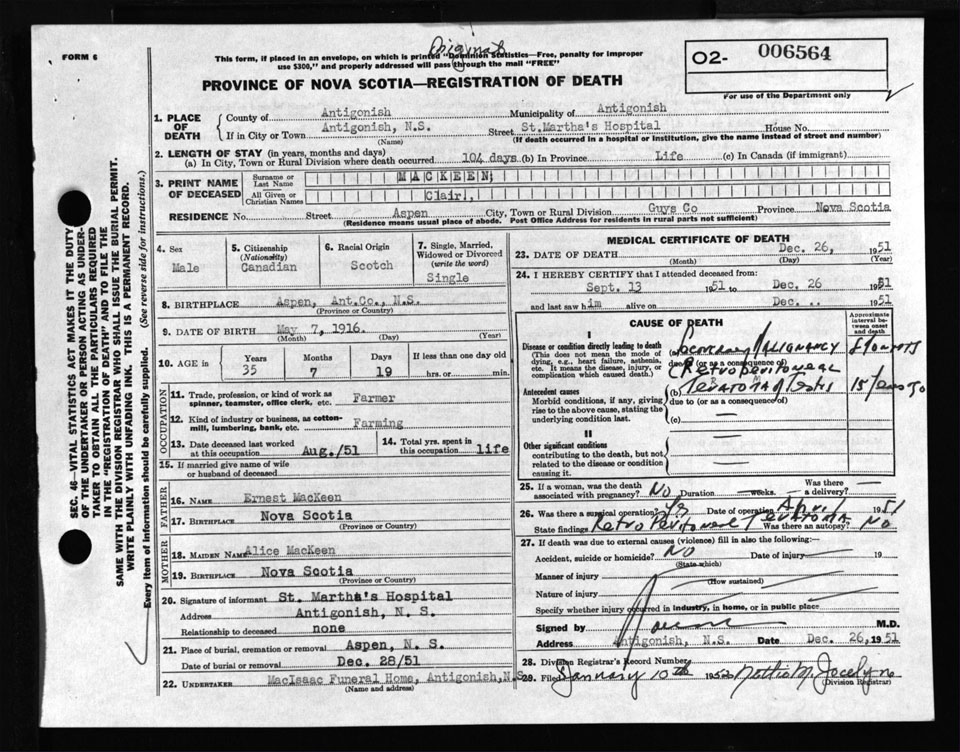 Original
FORM 6
This form, if placed in an envelope, on which is printed "Dominion Statistics—Free, penalty for improper
use $300," and properly addressed will pass through the mail "FREE"
O2- 006564
For use of the Department only
PROVINCE OF NOVA SCOTIA—REGISTRATION OF DEATH
SEC. 46—VITAL STATISTICS ACT MAKES IT THE DUTY
OF THE UNDERTAKER OR PERSON ACTING AS UNDER-
TAKER TO OBTAIN ALL THE PARTICULARS REQUIRED
IN THE "REGISTRATION OF DEATH" AND TO FILE THE
SAME WITH THE DIVISION REGISTRAR WHO SHALL ISSUE THE BURIAL PERMIT.
WRITE PLAINLY WITH UNFADING INK. THIS IS A PERMANENT RECORD.
Every item of Information should be carefully supplied. (See reverse side for instructions.)
1. PLACE OF DEATH
County of Antigonish Municipality of Antigonish
If in City or Town Antigonish, N.S. Street St.Martha's Hospital House No.
(Name) (If death occurred in a hospital or institution, give the name instead of street and number)
2. LENGTH OF STAY (in years, months and days)
(a) In City, Town or Rural Division where death occurred 104 days (b) In Province Life (c) In Canada (if immigrant)
3. PRINT NAME OF DECEASED
Surname or Last Name MACKEEN,
All Given or Christian Names Clair,
RESIDENCE No. Street Aspen City, Town or Rural Division Guys Co Province Nova Scotia
(Residence means usual place of abode. Post Office Address for residents in rural parts not sufficient)
4. Sex Male
5. Citizenship (Nationality) Canadian
6. Racial Origin Scotch
7. Single, Married, Widowed or Divorced (write the word) Single
8. BIRTHPLACE Aspen, Ant.Co., N.S.
(Province or Country)
9. DATE OF BIRTH May 7, 1916.
(Month) (Day) (Year)
10. AGE in Years Months Days If less than one day old
35 7 19 hrs. or min.
OCCUPATION
11. Trade, profession, or kind of work as
spinner, teamster, office clerk, etc. Farmer
12. Kind of industry or business, as cotton-
mill, lumbering, bank, etc. Farming
13. Date deceased last worked
at this occupation Aug./51
14. Total yrs. spent
in this occupation life
15. If married give name of wife
or husband of deceased
FATHER
16. NAME Ernest MacKeen
17. BIRTHPLACE Nova Scotia
(Province or Country)
MOTHER
18. MAIDEN NAME Alice MacKeen
19. BIRTHPLACE Nova Scotia
(Province or Country)
20. Signature of informant St. Martha's Hospital
Address Antigonish, N. S.
Relationship to deceased none
21. Place of burial, cremation or removal Aspen, N. S.
Date of burial or removal Dec. 28/51
22. UNDERTAKER MacIsaac Funeral Home, Antigonish,N.S.
(Name and address)
MEDICAL CERTIFICATE OF DEATH
23. DATE OF DEATH Dec. 26, 1951
(Month) (Day) (Year)
24. I HEREBY CERTIFY that I attended deceased from:
Sept. 13 1951 to Dec. 26 1951
and last saw him alive on Dec. .. 1951
CAUSE OF DEATH
Approximate interval between onset and death
I
Disease or condition directly leading to death
(This does not mean the mode of dying, e.g., heart failure, asthenia, etc. It means the disease, injury, or complication which caused death.)
(a) Secondary MALIGNANCY
due to (or as a consequence of)
Retroperitoneal
Antecedent causes
Morbid conditions, if any, giving rise to the above cause, stating the underlying condition last.
(b) TERATOMA of Testis 15 years
due to (or as a consequence of)
(c) —
II
Other significant conditions
contributing to the death, but not related to the disease or condition causing it.
25. If a woman, was the death associated with pregnancy? No Duration weeks. Was there a delivery?
26. Was there a surgical operation? Yes Date of operation April 1951
State findings Retro Peritoneal TERATOMA Was there an autopsy? No
27. If death was due to external causes (violence) fill in also the following:—
Accident, suicide or homicide? No Date of injury 19
(State which)
Manner of injury
(How sustained)
Nature of injury
Specify whether injury occurred in industry, in home, or in public place
Signed by M.D.
Address Antigonish, N.S. Date Dec. 26, 1951
28. Division Registrar's Record Number
29. Filed January 10th 1952 Nettie M. Jocelyn
(Division Registrar)